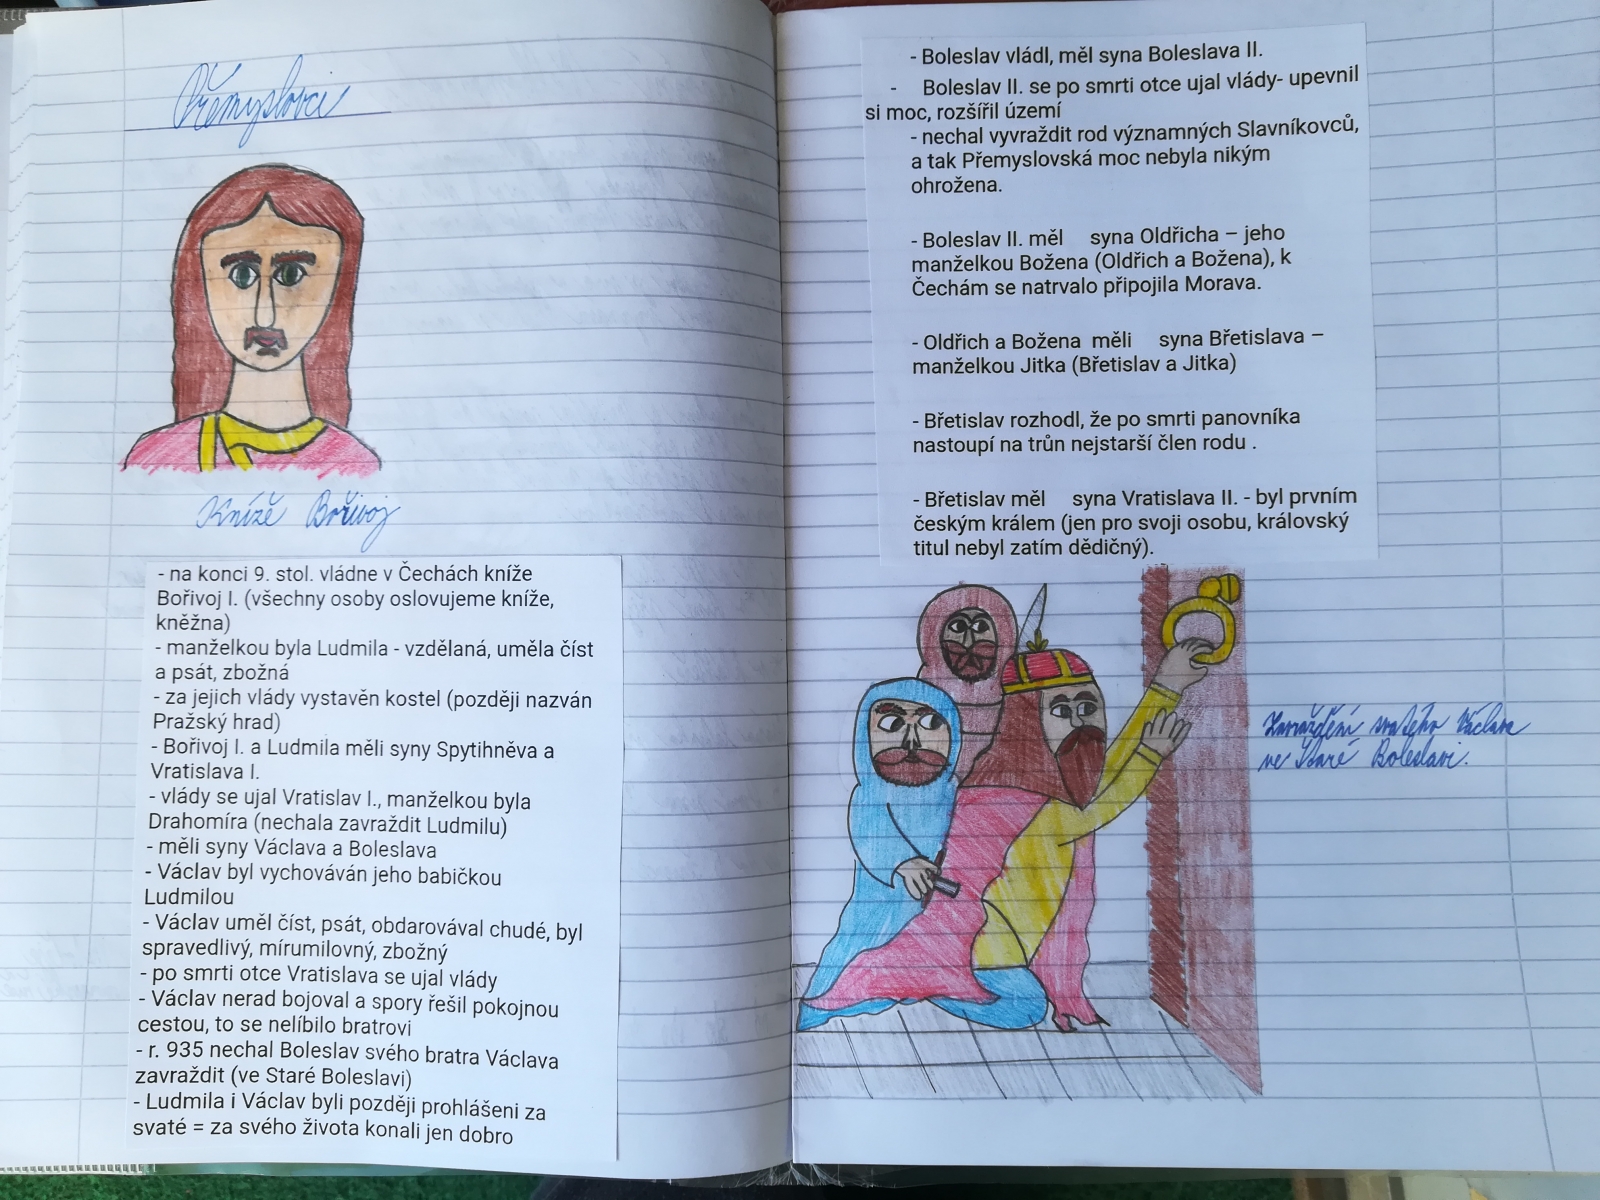 Přemyslovci
Kníže Bořivoj
- na konci 9. stol. vládne v Čechách kníže
Bořivoj I. (všechny osoby oslovujeme kníže,
kněžna)
- manželkou byla Ludmila - vzdělaná, uměla číst
a psát, zbožná
- za jejich vlády vystavěn kostel (později nazván
Pražský hrad)
- Bořivoj I. a Ludmila měli syny Spytihněva a
Vratislava I.
- vlády se ujal Vratislav I., manželkou byla
Drahomíra (nechala zavraždit Ludmilu)
- měli syny Václava a Boleslava
- Václav byl vychováván jeho babičkou
Ludmilou
- Václav uměl číst, psát, obdarovával chudé, byl
spravedlivý, mírumilovný, zbožný
- po smrti otce Vratislava se ujal vlády
- Václav nerad bojoval a spory řešil pokojnou
cestou, to se nelíbilo bratrovi
- r. 935 nechal Boleslav svého bratra Václava
zavraždit (ve Staré Boleslavi)
- Ludmila i Václav byli později prohlášeni za
svaté = za svého života konali jen dobro
- Boleslav vládl, měl syna Boleslava II.
- Boleslav II. se po smrti otce ujal vlády- upevnil
si moc, rozšířil území
- nechal vyvraždit rod významných Slavníkovců,
a tak Přemyslovská moc nebyla nikým
ohrožena.
- Boleslav II. měl syna Oldřicha – jeho
manželkou Božena (Oldřich a Božena), k
Čechám se natrvalo připojila Morava.
- Oldřich a Božena měli syna Břetislava –
manželkou Jitka (Břetislav a Jitka)
- Břetislav rozhodl, že po smrti panovníka
nastoupí na trůn nejstarší člen rodu .
- Břetislav měl syna Vratislava II. - byl prvním
českým králem (jen pro svoji osobu, královský
titul nebyl zatím dědičný).
Zavraždění svatého Václava
ve Staré Boleslavi.